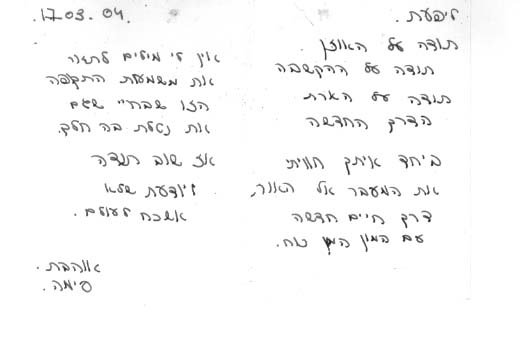 ליפעת.
תודה על האוזן
תודה על ההקשבה
תודה על הארת
הדרך החדשה
ביחד איתך חוויתי
את המעבר אל האור,
דרך חיים חדשה
עם המון כוח.
17.03.04.
אין לי מילים לתאור
את משמעות התקופה
הזו שבחיי שגם
את נטלת בה חלק.
אז שוב תודה
שלא
אשכח לעולם.
אוהבת.
סימה.